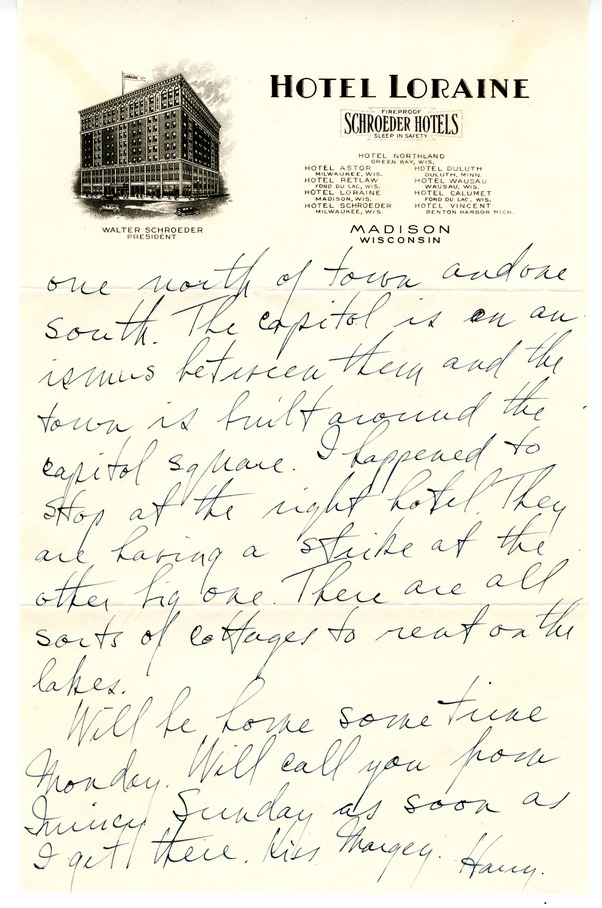 HOTEL LORAINE
FIREPROOF
SCHROEDER HOTELS
SLEEP IN SAFETY
HOTEL NORTHLAND
GREEN BAY, WIS.
HOTEL ASTOR
MILWAUKEE, WIS.
HOTEL RETLAW
FOND DU LAC, WIS.
HOTEL LORAINE
MADISON, WIS.
HOTEL SCHROEDER
MILWAUKEE, WIS.
HOTEL DULUTH
DULUTH, MINN.
HOTEL WAUSAU
WAUSAU, WIS.
HOTEL CALUMET
FOND DU LAC, WIS.
HOTEL VINCENT
BENTON HARBOR, MICH.
WALTER SCHROEDER
PRESIDENT
MADISON
WISCONSIN
one north of town and one
south. The capitol is on an
ismus between them and the
town is built around the
capitol square. I happened to
stop at the right hotel. They
are having a strike at the
other big one. There are all
sorts of cottages to rent on the
lakes.
Will be home sometime
Monday. Will call you from
Quincy Sunday as soon as
I get there. Kiss Margey. Harry.